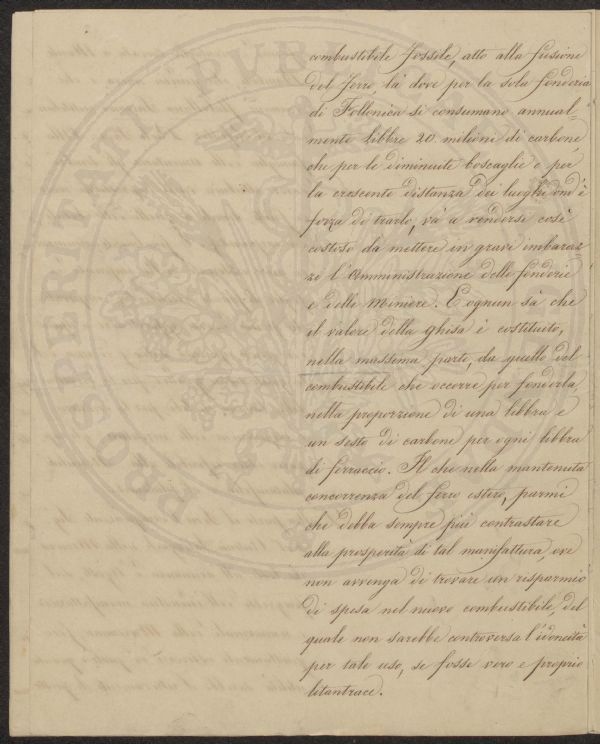 combustibile fossile, atto alla fusione
del ferro, là dove per la sola fonderia
di Follonica si consumano annual=
mente libbre 20. milioni di carbone
che per le diminuite boscaglie e per
la crescente distanza dei luoghi ond'è
forza di trarlo, và a rendersi così
costoso da mettere in gravi imbaraz=
zi l'Amministrazione delle fonderie
e delle Miniere. E ognun sà che
il valore della ghisa è costituito,
nella massima parte, da quello del
combustibile che occorre per fonderla,
nella proporzione di una libbra e
un sesto di carbone per ogni libbra
di ferraccio. Il che nella mantenuta
concorrenza del ferro estero, parmi
che debba sempre più contrastare
alla prosperità di tal manifattura, ove
non avvenga di trovare un risparmio
di spesa nel nuovo combustibile, del
quale non sarebbe controversa l'idoneità
per tale uso, se fosse vero e proprio
litantrace.
PROSPERITATI PVB